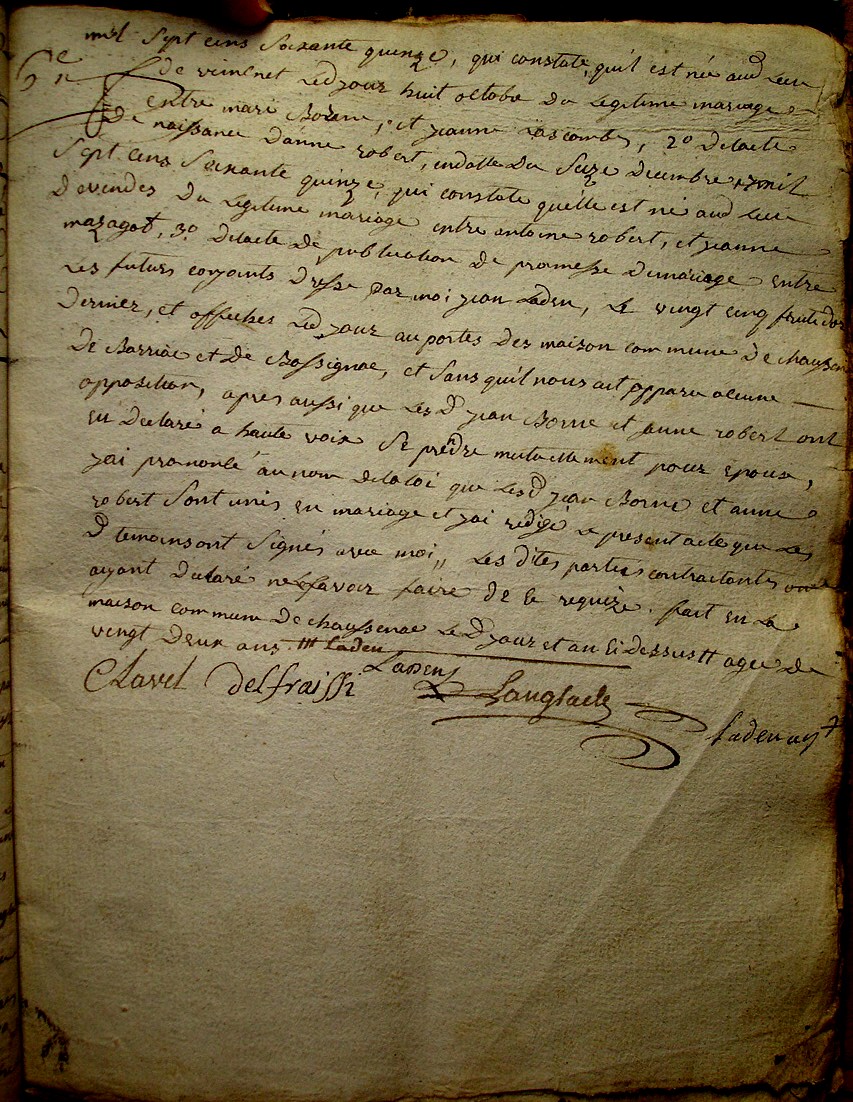 mil Sept cens Soixante quinze, qui constate, qu'il est née aud Lieu
6e
de veirenet Ledjour huit octobre du Legitime mariage
entre mari Borne, et jeanne Lascombes, 2o Delacte
De naissance Danne robert, en datte du Seize Decembre mil
Sept cens Soixante quinze, qui constate quelle est né aud Lieu
Devendes Du Legitime mariage entre antoine robert, et jeanne
mazagot, 3o Delacte De publication De promesse Demariage entre
Les futurs conjoints Dressé par moi jean Laden, Le vingt cinq fructidor
Dernier, et affiches Ledjour au portes Des maison commune De chaussenac
De Barriac et De Bassignac, et Sans qu'il nous ait apparu aucune
opposition, apres aussi que Lesd jean Borne et anne robert ont
eu Declaré a haute voix Se prendre mutuellement pour epoux,
jai prononcé au nom delaloi que Lesd jean Borne et anne
robert Sont unis en mariage et jai redigé Le present acte que Les
d temoins ont Signés avec moi,, Les dites parties contractantes
ayant Declaré ne Savoir faire De Ce requize. fait en La
maison commune De chaussenac Led jour et an Ci Dessus tt agée De
vingt Deux ans. ttt Laden
Ladens
Clavel delfraissi
Langlade
Laden